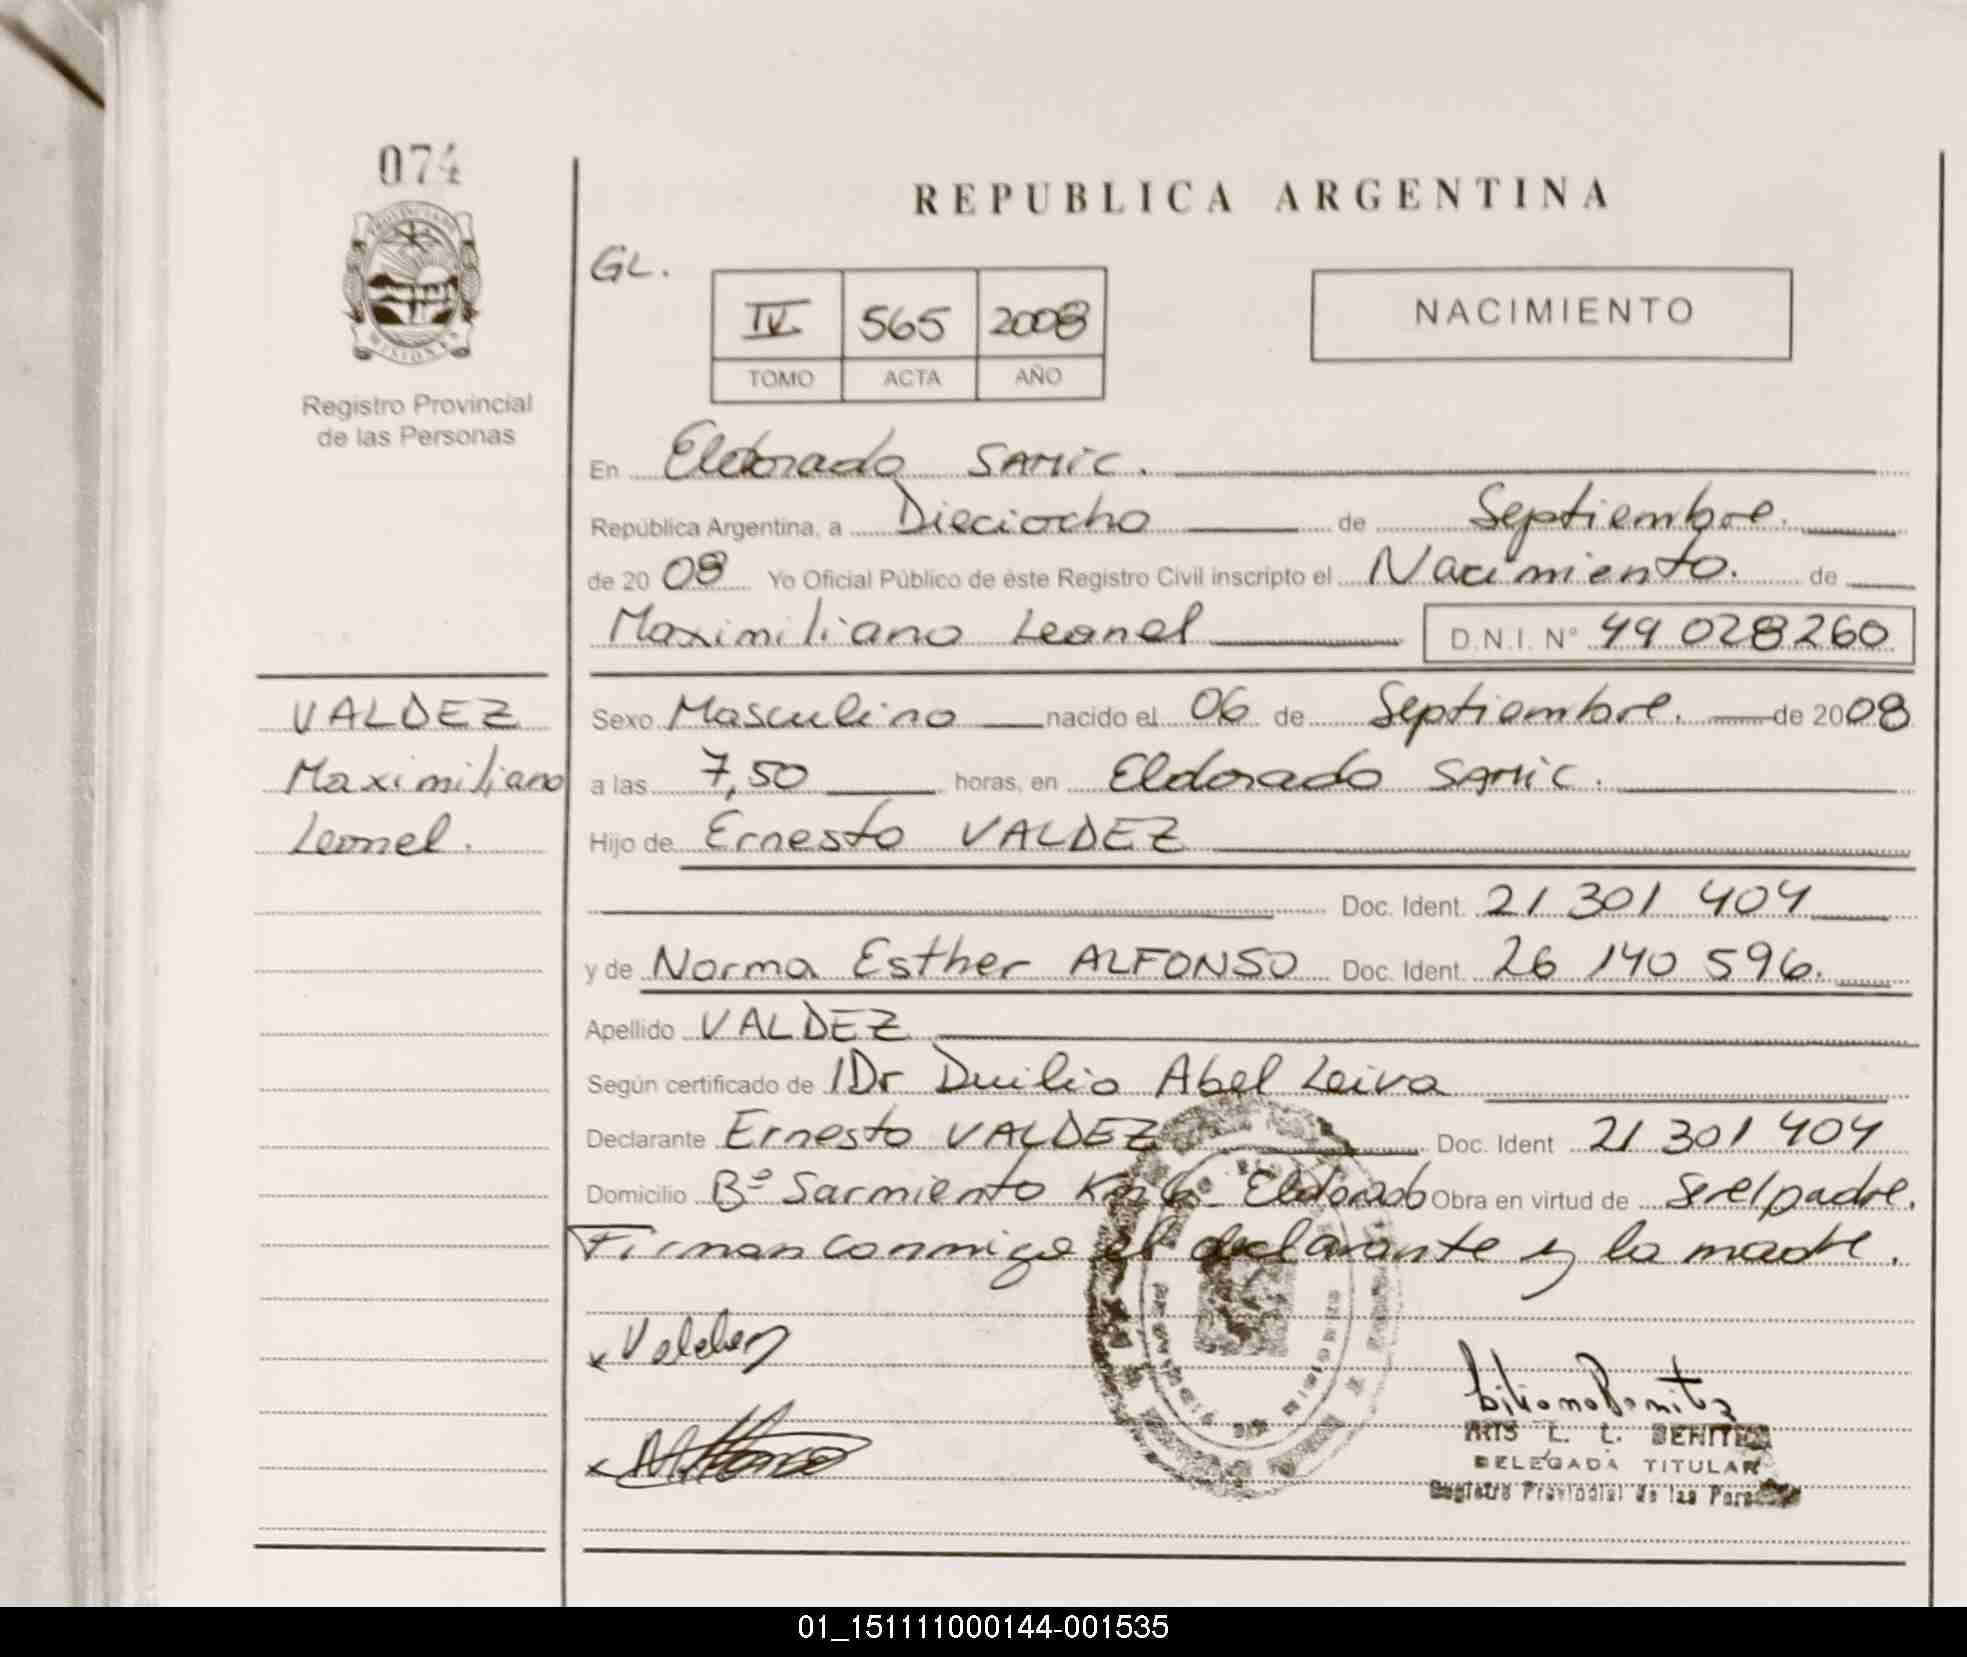 074
REPUBLICA ARGENTINA
GL.
IV 565 2008
TOMO ACTA AÑO
NACIMIENTO
MISIONES
Registro Provincial
de las Personas
En Eldorado SAMIC.
República Argentina, a Dieciocho de Septiembre.
de 2008 Yo Oficial Público de éste Registro Civil inscripto el Nacimiento. de
Maximiliano Leonel D.N.I. N° 49 028260
VALDEZ
Maximiliano
Leonel.
Sexo Masculino nacido el 06 de Septiembre. de 2008
a las 7,50 horas, en Eldorado SAMIC.
Hijo de Ernesto VALDEZ
Doc. Ident. 21 301 404
y de Norma Esther ALFONSO Doc. Ident. 26 140 596.
Apellido VALDEZ
Según certificado de Dr Duilio Abel Leiva
Declarante Ernesto VALDEZ Doc. Ident 21 301 404
Domicilio Bº Sarmiento Km Eldorado Obra en virtud de Ser el padre.
Firman conmigo el declarante y la madre.
x Valdez
L. L. BENITEZ
DELEGADA TITULAR
Registro Provincial de las Personas
01_151111000144-001535